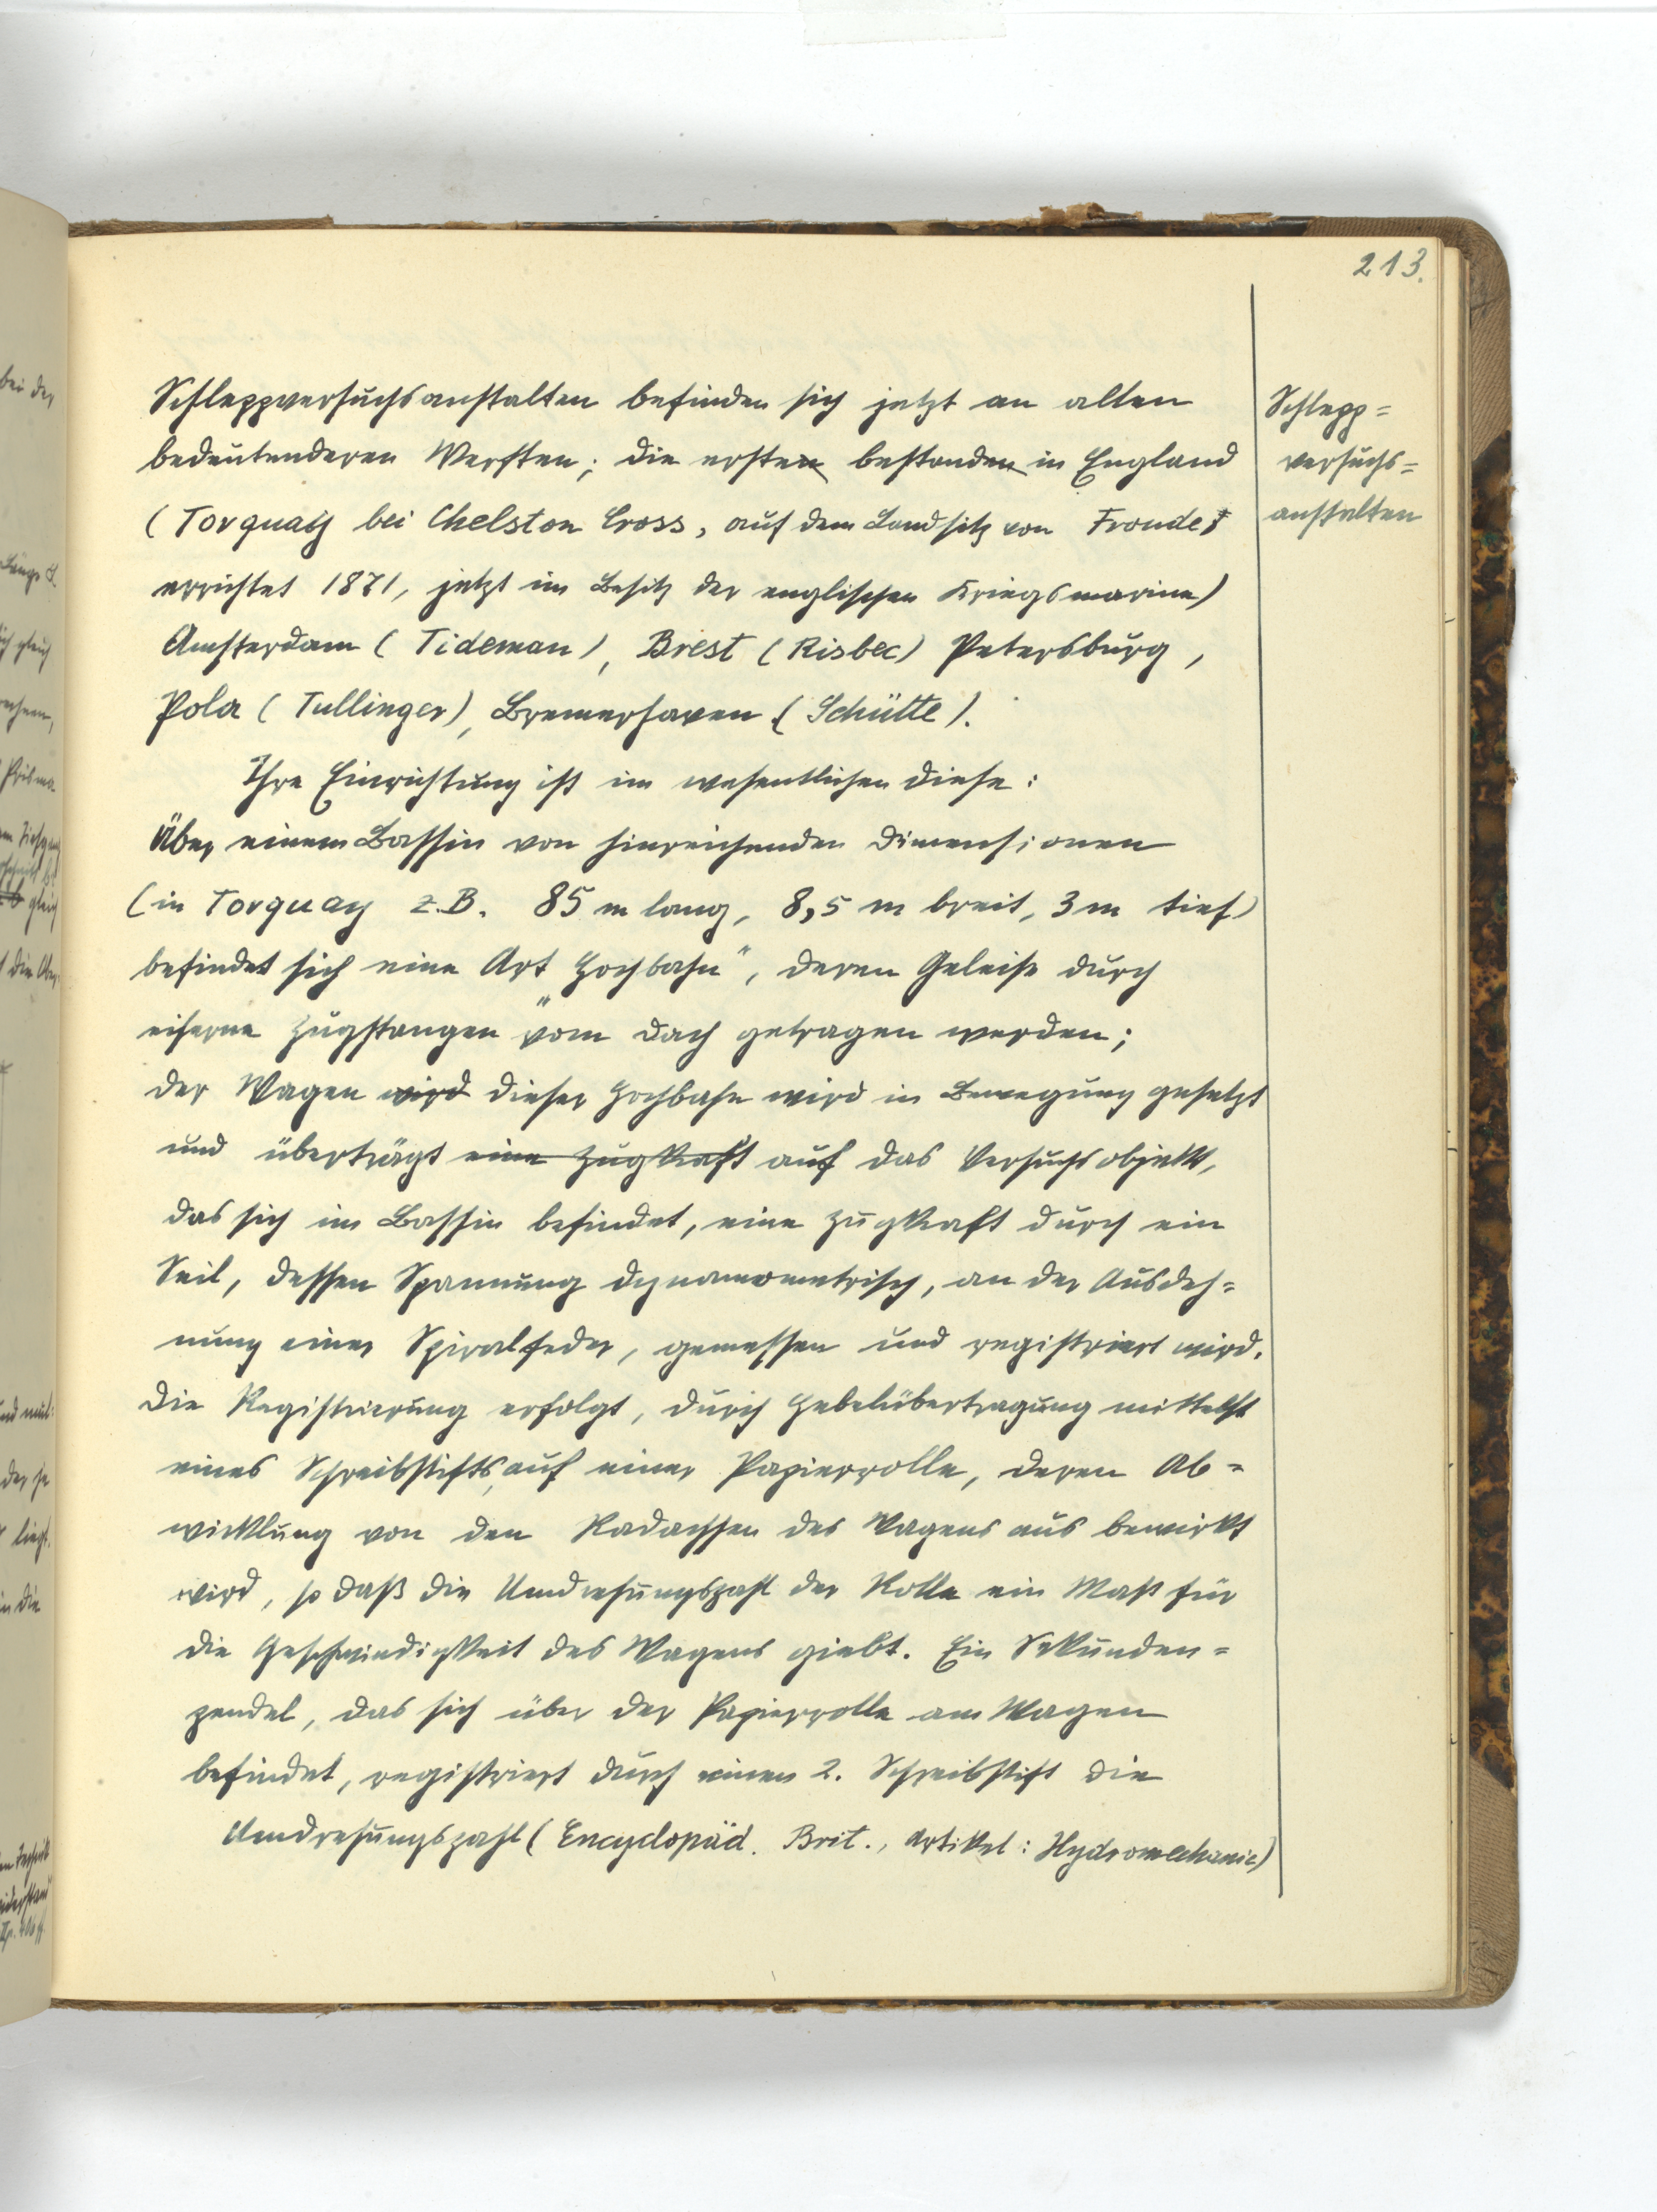 213.
Schleppversuchsanstalten befinden sich jetzt an allen
bedeutenderen Werften; die ersten bestanden in England
(Torquay bei Chelston Cross, auf dem Landsitz von Froude,
errichtet 1871, jetzt im Besitz der englischen Kriegsmarine)
Amsterdam (Tideman), Brest (Risbec) Petersburg,
Pola (Tullinger), Bremerhaven (Schütte).
Ihre Einrichtung ist im wesentlichen diese:
Über einem Bassin von hinreichenden Dimensionen
(in Torquay z.B. 85 m lang, 8,5 m breit, 3 m tief)
befindet sich eine Art „Hochbahn“, deren Geleise durch
eiserne Zugstangen vom Dach getragen werden;
der Wagen wird dieser Hochbahn wird in Bewegung gesetzt
und überträgt eine Zugkraft auf das Versuchsobjekt,
das sich im Bassin befindet, eine Zugkraft durch ein
Seil, dessen Spannung dynamometrisch, an der Ausdeh=
nung einer Spiralfeder, gemessen und registriert wird.
Die Registrierung erfolgt, durch Hebelübertragung mittelst
eines Schreibstifts, auf einer Papierrolle, deren Ab=
wicklung von den Radachsen des Wagens aus bewirkt
wird, so daß die Umdrehungszahl der Rolle ein Maß für
die Geschwindigkeit des Wagens giebt. Ein Sekunden=
pendel, das sich über der Papierrolle am Wagen
befindet, registriert durch einen 2. Schreibstift die
Umdrehungszahl (Encyclopäd. Brit., Artikel: Hydromechanic)
Schlepp=
versuchs=
anstalten